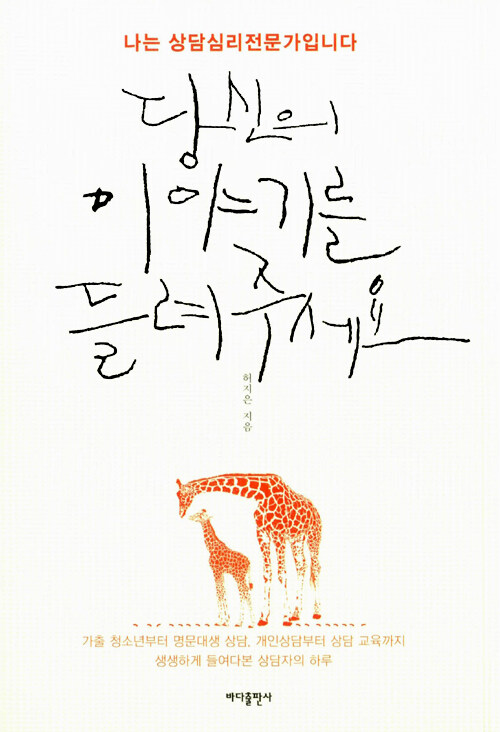 나는 상담심리전문가입니다
당신의
이야기를
들려주세요
허지은 지음
가출 청소년부터 명문대생 상담, 개인상담부터 상담 교육까지
생생하게 들여다본 상담자의 하루
바다출판사